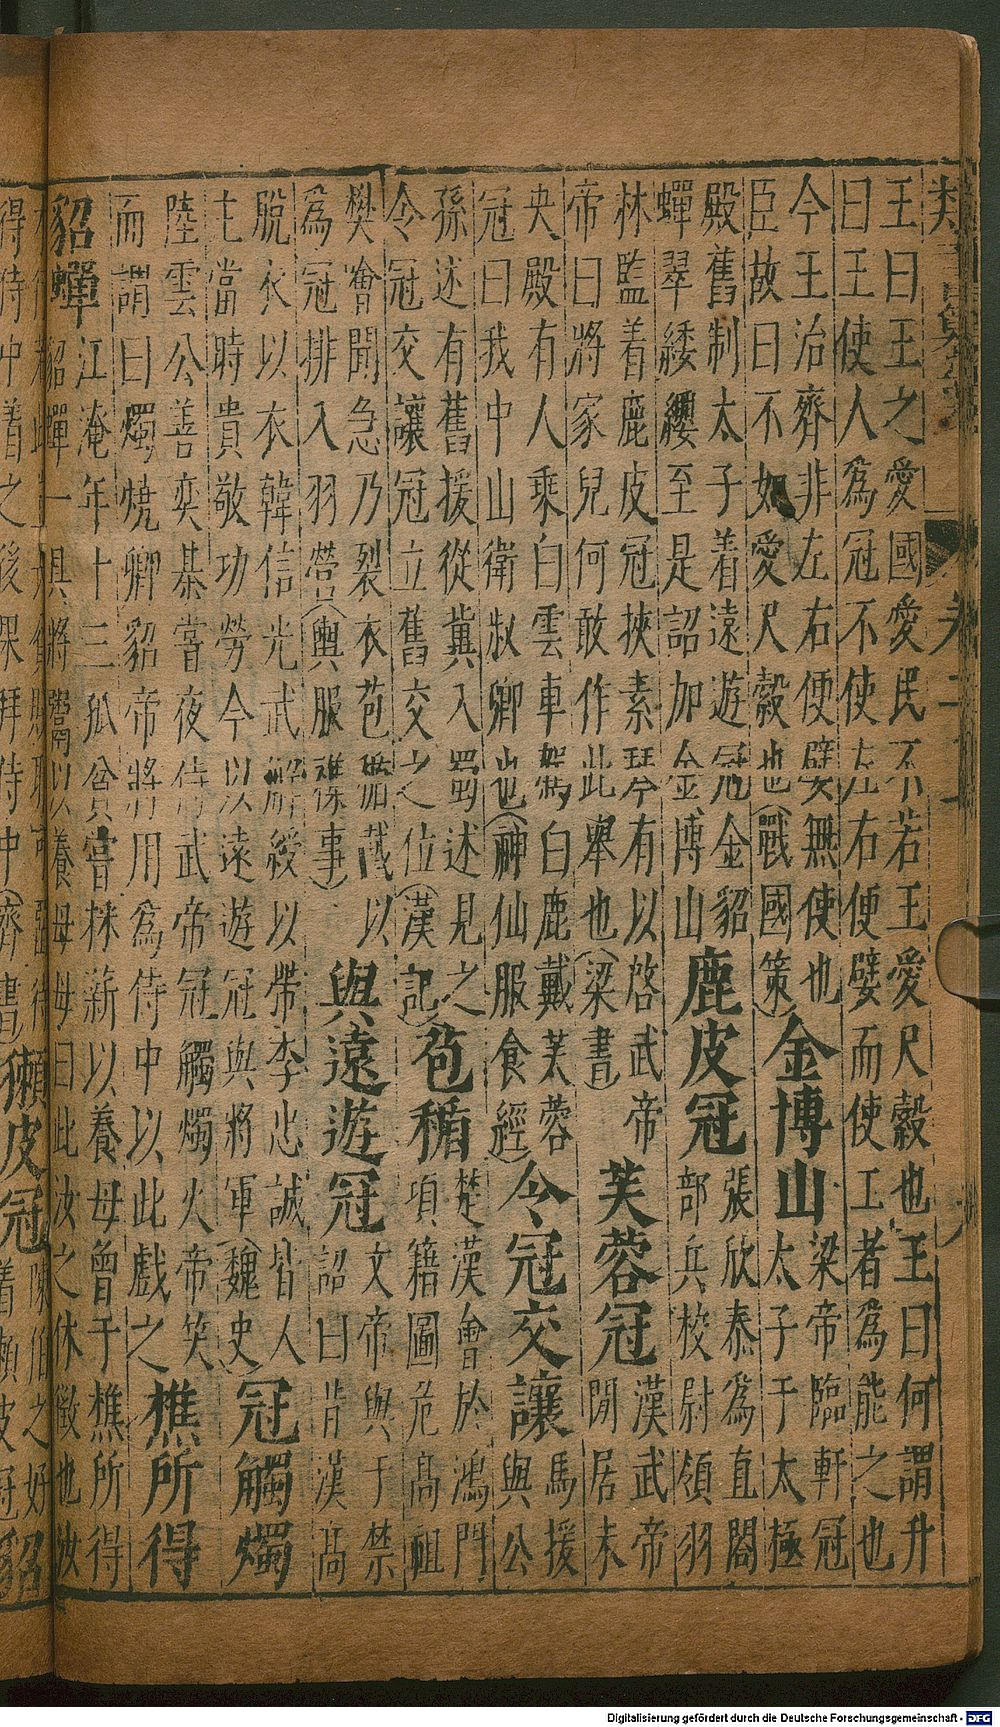 王曰王之愛國愛民不若王愛尺縠也王曰何謂升
曰王使人為冠不使左右便嬖而使工者為能之也
今王治齊非左右便嬖無使也
臣故曰不如愛尺縠也(戰國策)
金博山
梁帝臨軒冠
太子于太極
殿舊制太子着遠遊冠金貂
蟬翠緌纓至是詔加金博山
鹿皮冠
張欣泰為直閤
部兵校尉領羽
林監着鹿皮冠挾素琴有以啓武帝
帝曰將家兒何敢作此舉也(梁書)
芙蓉冠
漢武帝
閒居未
央殿有人乘白雲車駕白鹿戴芙蓉
冠曰我中山衛叔卿也(神仙服食經)
令冠交讓
馬援
與公
孫述有舊援從冀入蜀述見之
令冠交讓冠立舊交之位(漢記)
苞楯
楚漢會於鴻門
項籍圖危高祖
樊噲聞急乃裂衣苞楯戴以
為冠排入羽營(輿服雜事)
與遠遊冠
文帝與于禁
詔曰昔漢高
脫衣以衣韓信光武解綬以帶李忠誠皆人
主當時貴敬功勞今以遠遊冠與將軍(魏史)
冠觸燭
陸雲公善奕棊嘗夜侍武帝冠觸燭火帝笑
而謂曰燭燒卿貂帝將用為侍中以此戲之
樵所得
貂蟬
江淹年十三孤貧嘗採薪以養母曾于樵所得
貂蟬一具將鬻以養母母曰此汝之休徵也汝
得侍中着之後果拜侍中(齊書)
獺皮冠
陳伯之好
着獺皮冠
貂
Digitalisierung gefördert durch die Deutsche Forschungsgemeinschaft - DFG